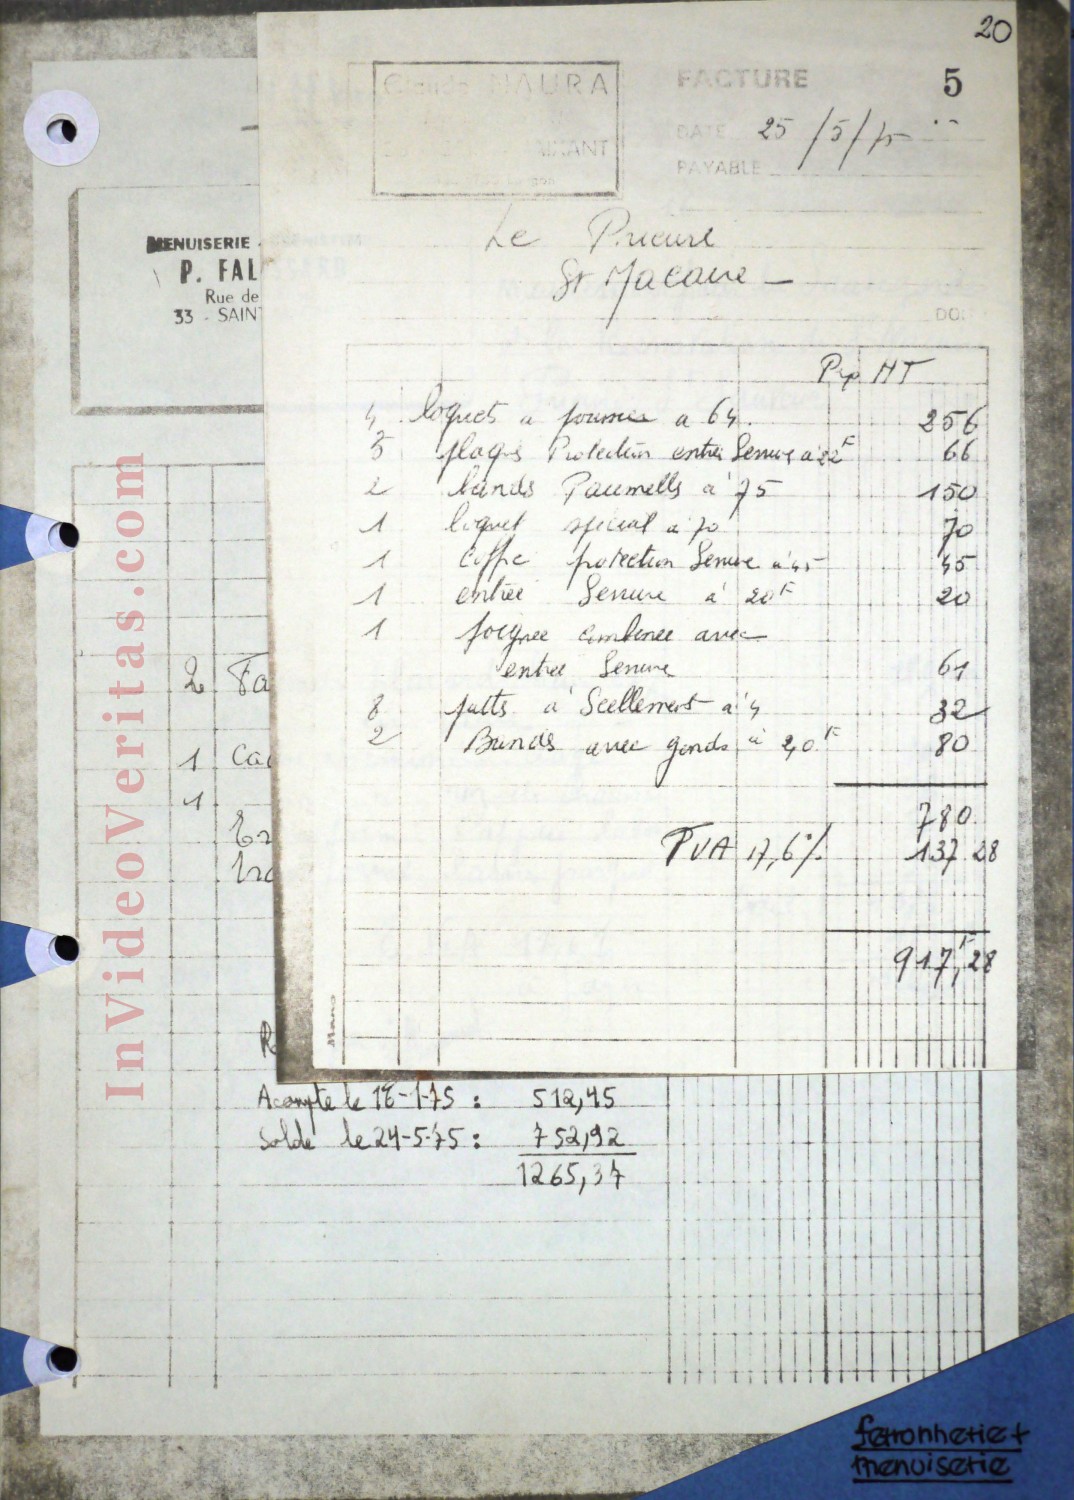 20
Claude NAURA
FACTURE
5
DATE 25/5/75
PAYABLE
Le Prieuré
St Macaire
DOIT
MENUISERIE
P. FAL
Rue de
33 - SAINT
Prix HT
4 loquets a fournir a 64. 256
3 plaques Protection entrée Serrure à 22F 66
2 bands Paumelles à 75 150
1 loquet spécial à 70 70
1 coffre protection Serrure à 45 45
1 entrée Serrure à 20F 20
1 poignée combinée avec
entrée Serrure 61
8 patts à Scellement à 4 32
2 Bands avec gonds à 40F 80
780
TVA 17,6% 137.28
917F,28
2 Fa
1 Cad
1
Mano
Acompte le 18-1-75 : 512,45
Solde le 24-5-75 : 752,92
1265,37
ferronnerie +
menuiserie
InVideoVeritas.com